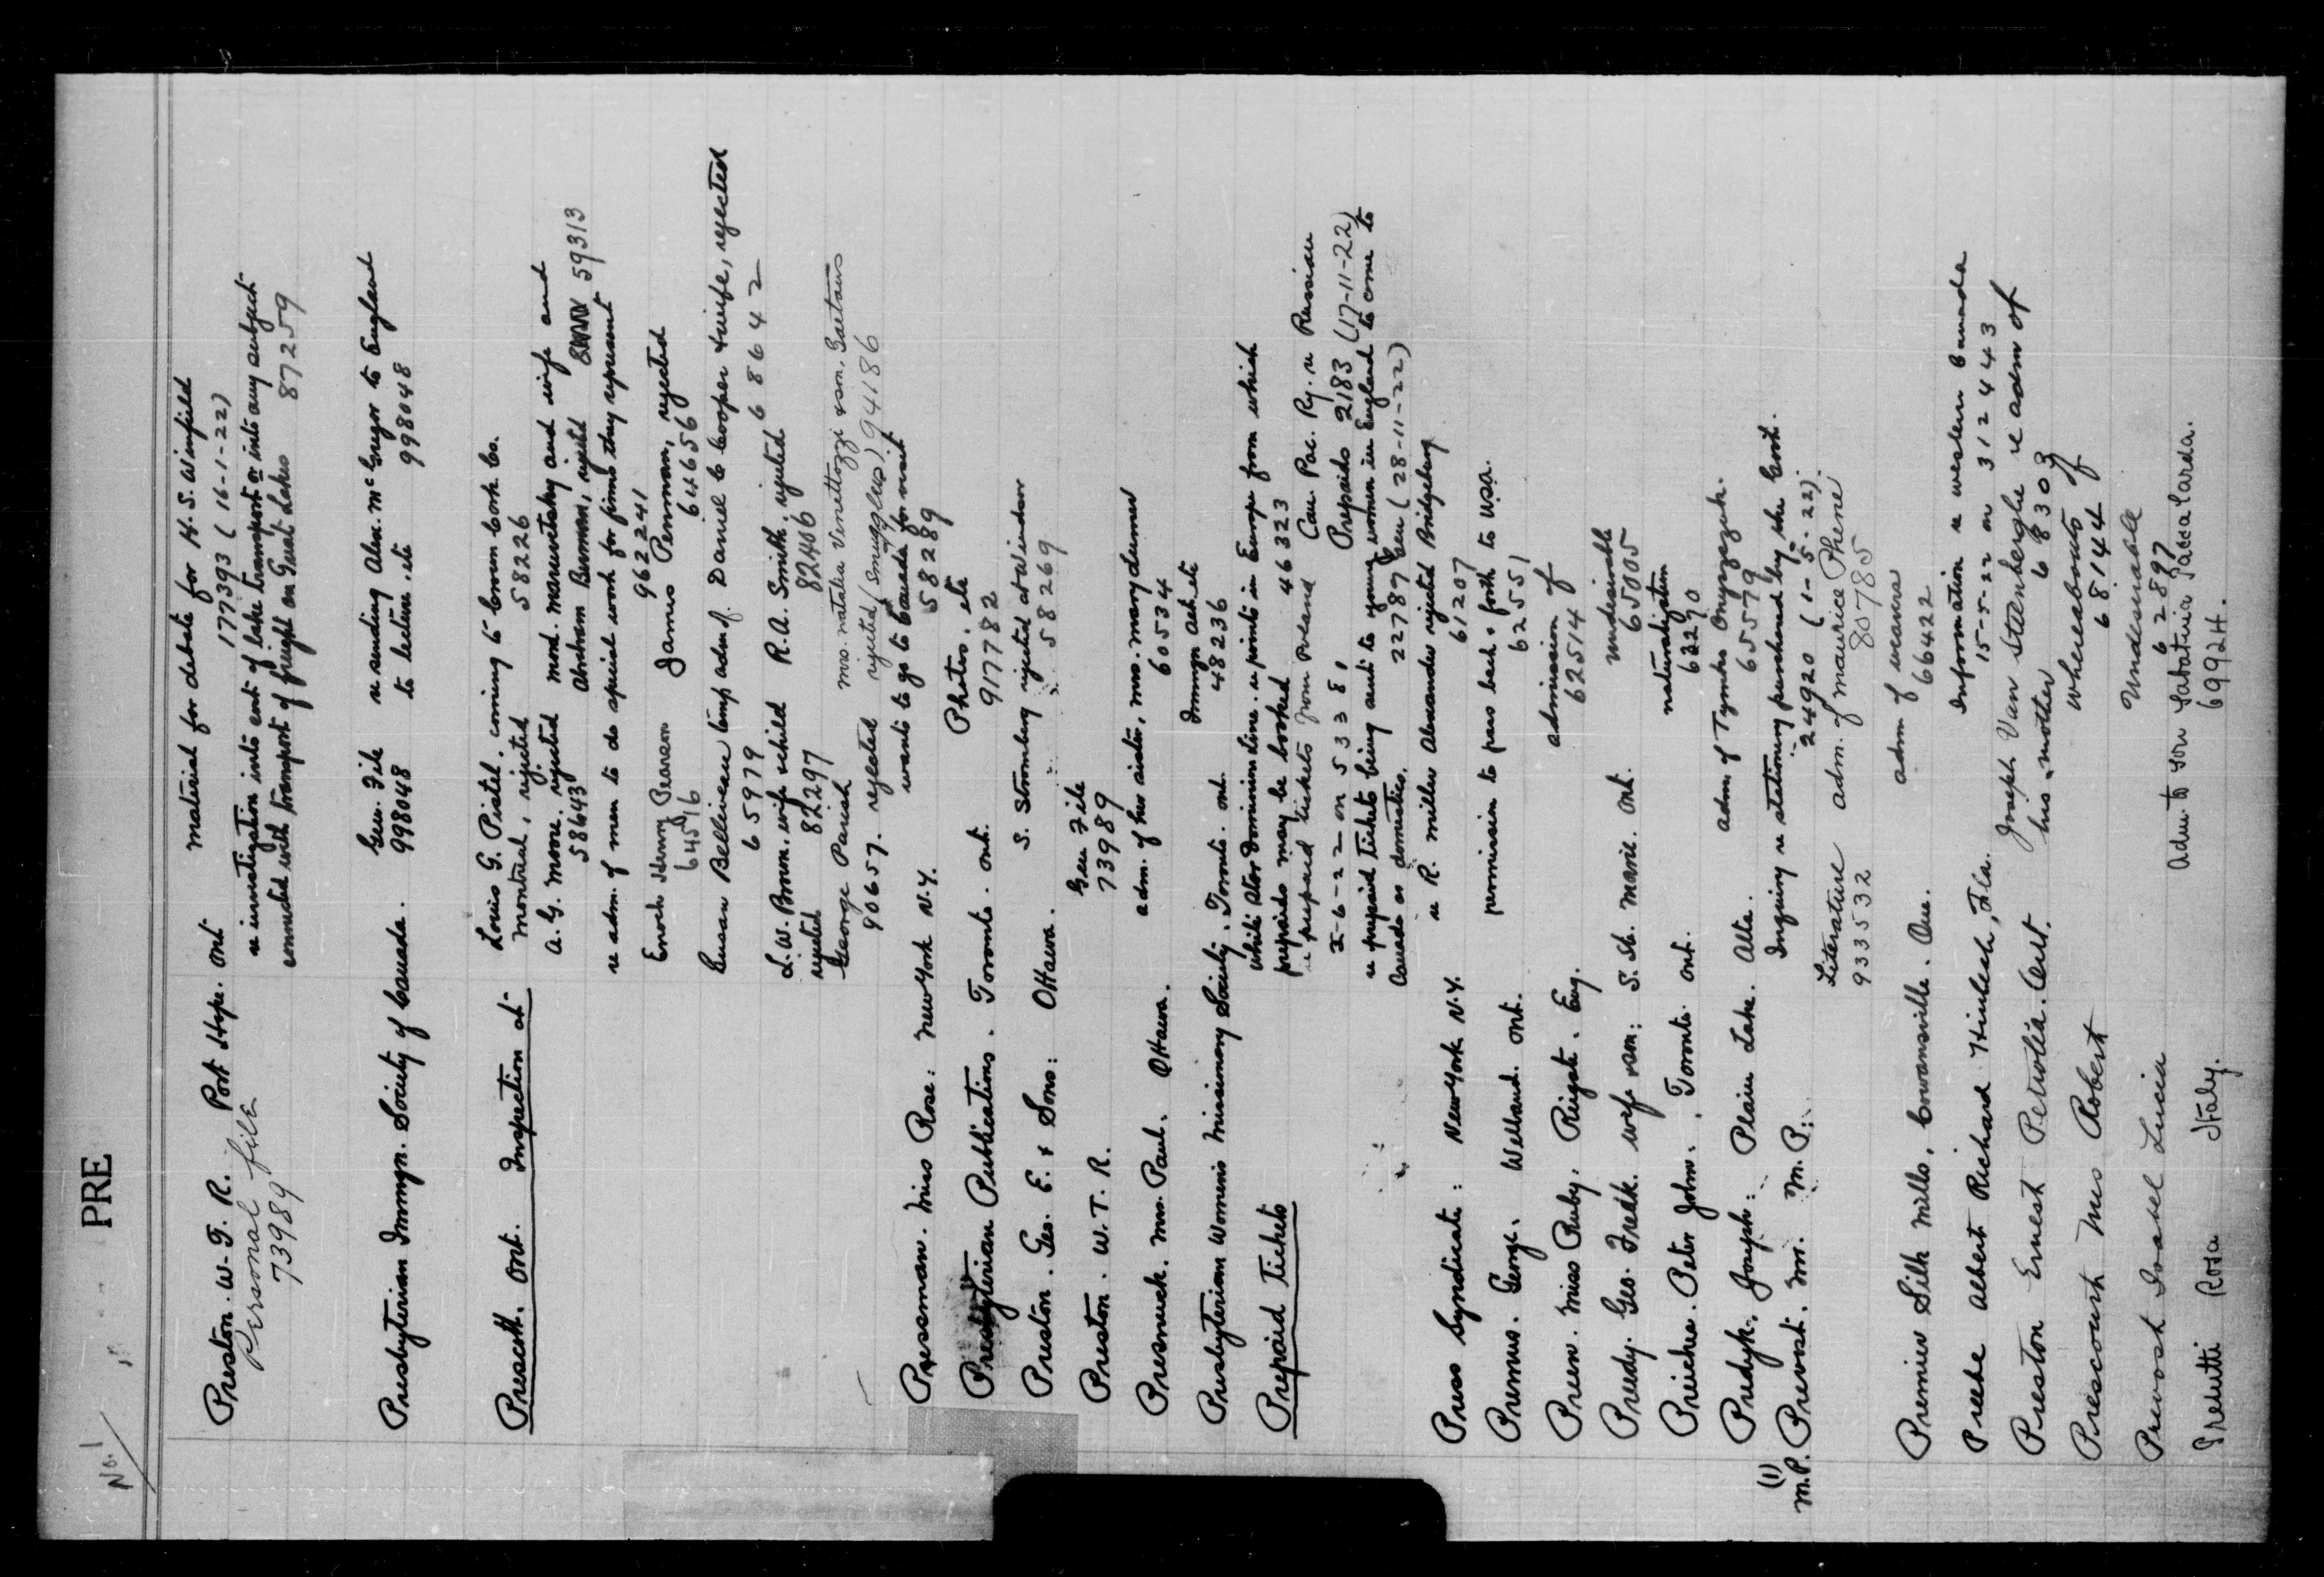 No. 1
PRE
Preston. W. T. R. Port Hope. Ont
Personal file
73989
material for debate for H. S. Winfield
177393 (16-1-22)
re investigation into cost of lake transport or into any subject
connected with transport of freight on Great Lakes 87259
Presbyterian Immgn. Society of Canada.
Gen. File
998048
re sending Alex. McGregor to England
to lecture. etc 998048
Prescott. Ont. Inspection at.
Louis G. Pistel. coming to Crown Cork Co.
Montreal, rejected 58226
A. G. Moore. rejected
58643
mord. and wife and
Abraham Berman, rejected 59313
re adm. of men to do special work for firms they represent
962241
Enoch Henry Pearson
64516
James Penman, rejected
646656
Susan Belliveau temp adm of.
65979
Daniel C Cooper & wife, rejected
686642
L. W. Brown. wife & child
rejected 82297
R. A. Smith. rejected
82406
George Parish
90657. rejected
mrs. natalia Venettozzi & son. Gaetano
rejected (Smuggled) 94186
Pressman. Miss Rose: New York N.Y.
wants to go to Canada for visit
58289
Presbyterian Publications. Toronto. Ont.
Photos. etc
917782
Preston. Geo. E. & Sons: Ottawa.
S. Stromberg rejected at Windsor
58269
Preston. W. T. R.
Gen File
73989
Presnuck. Mrs. Paul. Ottawa.
adm. of her sister, mrs. mary
60534
Presbyterian Women's Missionary Society. Toronto. Ont.
Immgn Act etc
48236
Prepaid Tickets
White Star Dominion Line. re points in Europe from which
prepaids may be booked 46323
re prepaid tickets from Poland
2-6-22 on 53381
Can. Pac. Ry. re Russian
Prepaids 2183 (17-11-22)
re prepaid tickets being sent to young women in England to come to
Canada as domestics. 22787 (28-11-22)
Press Syndicate: New York N.Y.
re R. Miller Alexander rejected Bridgeburg
61207
Premus. George. Welland. Ont.
permission to pass back & forth to USA.
62551
Preen. Miss Ruby. Reigate. Eng.
admission of
62514
Preedy. Geo. Fredk. wife & son: S. Ste. Marie. Ont.
undesirable
65005
Preiches. Peter John. Toronto. Ont.
naturalization
63270
Predyk. Joseph: Plain Lake. Alta.
adm. of Tymko
65579
(1)
M.P. Prevost. Mr. M. P.:
Inquiry re stationery purchased by the Govt.
24920 (1-5-22)
Literature
933532
adm. of Maurice Phene
80785
Premier Silk Mills. Cowansville. Que.
adm of weavers
66422
Preebe Albert Richard Fla.
Information re western Canada
15-5-22 on 312443
Preston Ernest Petrolia. Ont.
Joseph Van Steenberghe re adm of
his mother 68303
Prescourt Mrs Robert
whereabouts of
68144
Prevost Isabel Lucia
Undesirable
62897
Predutti Rosa Italy.
69924.